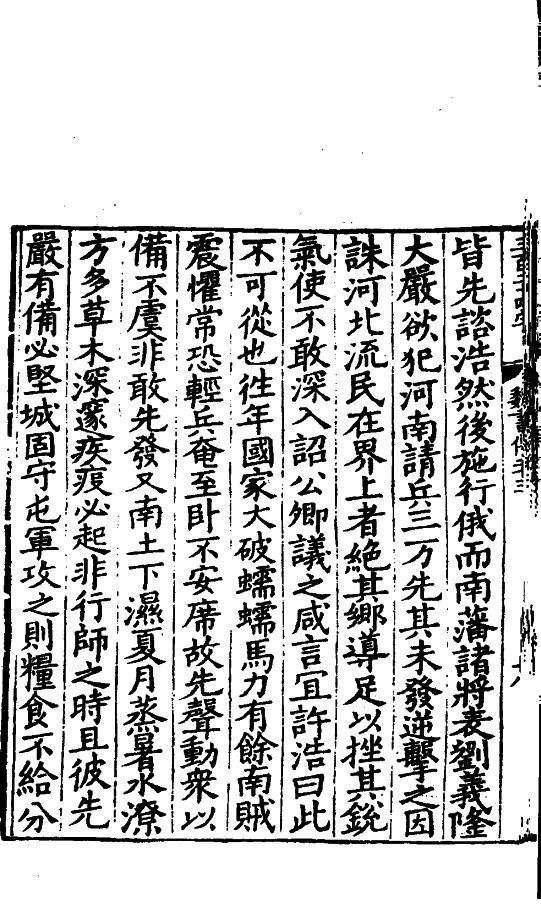 皆先諮浩然後施行俄而南藩諸將表劉義隆
大嚴欲犯河南請兵三万先其未發逆擊之因
誅河北流民在界上者絶其鄉導足以挫其銳
氣使不敢深入詔公卿議之咸言宜許浩曰此
不可從也往年國家大破蠕蠕馬力有餘南賊
震懼常恐輕兵奄至卧不安席故先聲動衆以
備不虞非敢先發又南土下濕夏月蒸暑水潦
方多草木深邃疾疫必起非行師之時且彼先
嚴有備必堅城固守屯軍攻之則糧食不給分